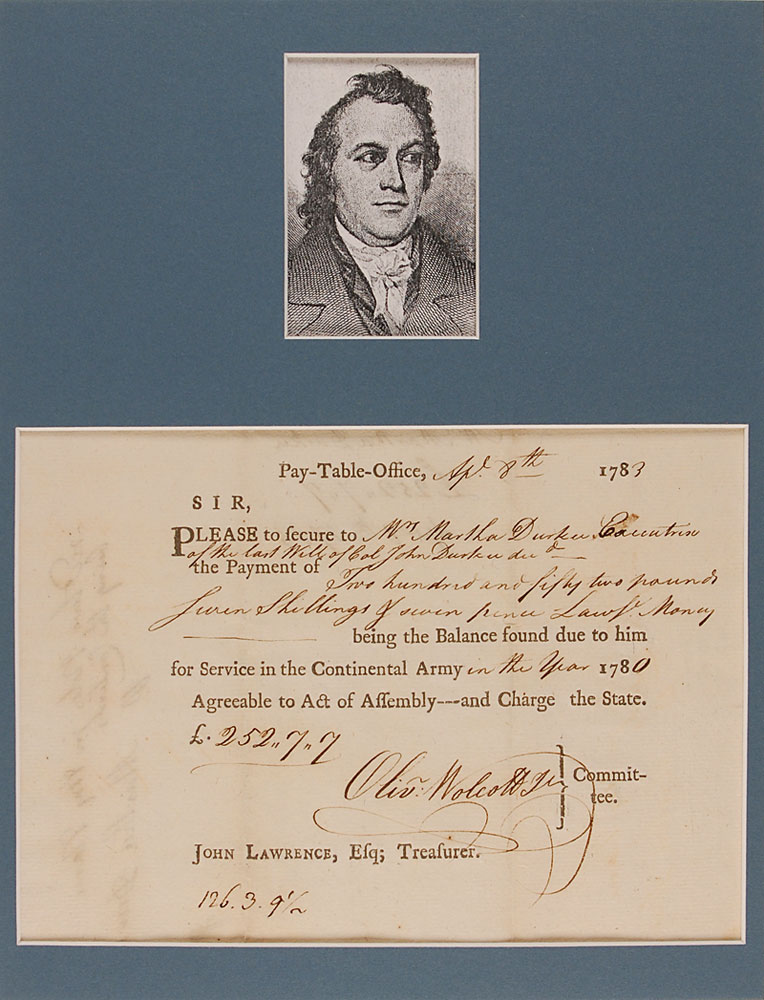 Pay-Table-Office, Apl. 8th 1783
SIR,
PLEASE to secure to Mrs Martha Durkee Executrix
of the last Will of Col John Durkee decd
the Payment of Two hundred and fifty two pounds
Seven Shillings & seven pence Lawfl. Money
being the Balance found due to him
for Service in the Continental Army in the Year 1780
Agreeable to Act of Aſſembly---and Charge the State.
£. 252,, 7,, 7
Olivr. Wolcott Jr } Commit-
tee.
JOHN LAWRENCE, Eſq; Treaſurer.
126. 3. 9½